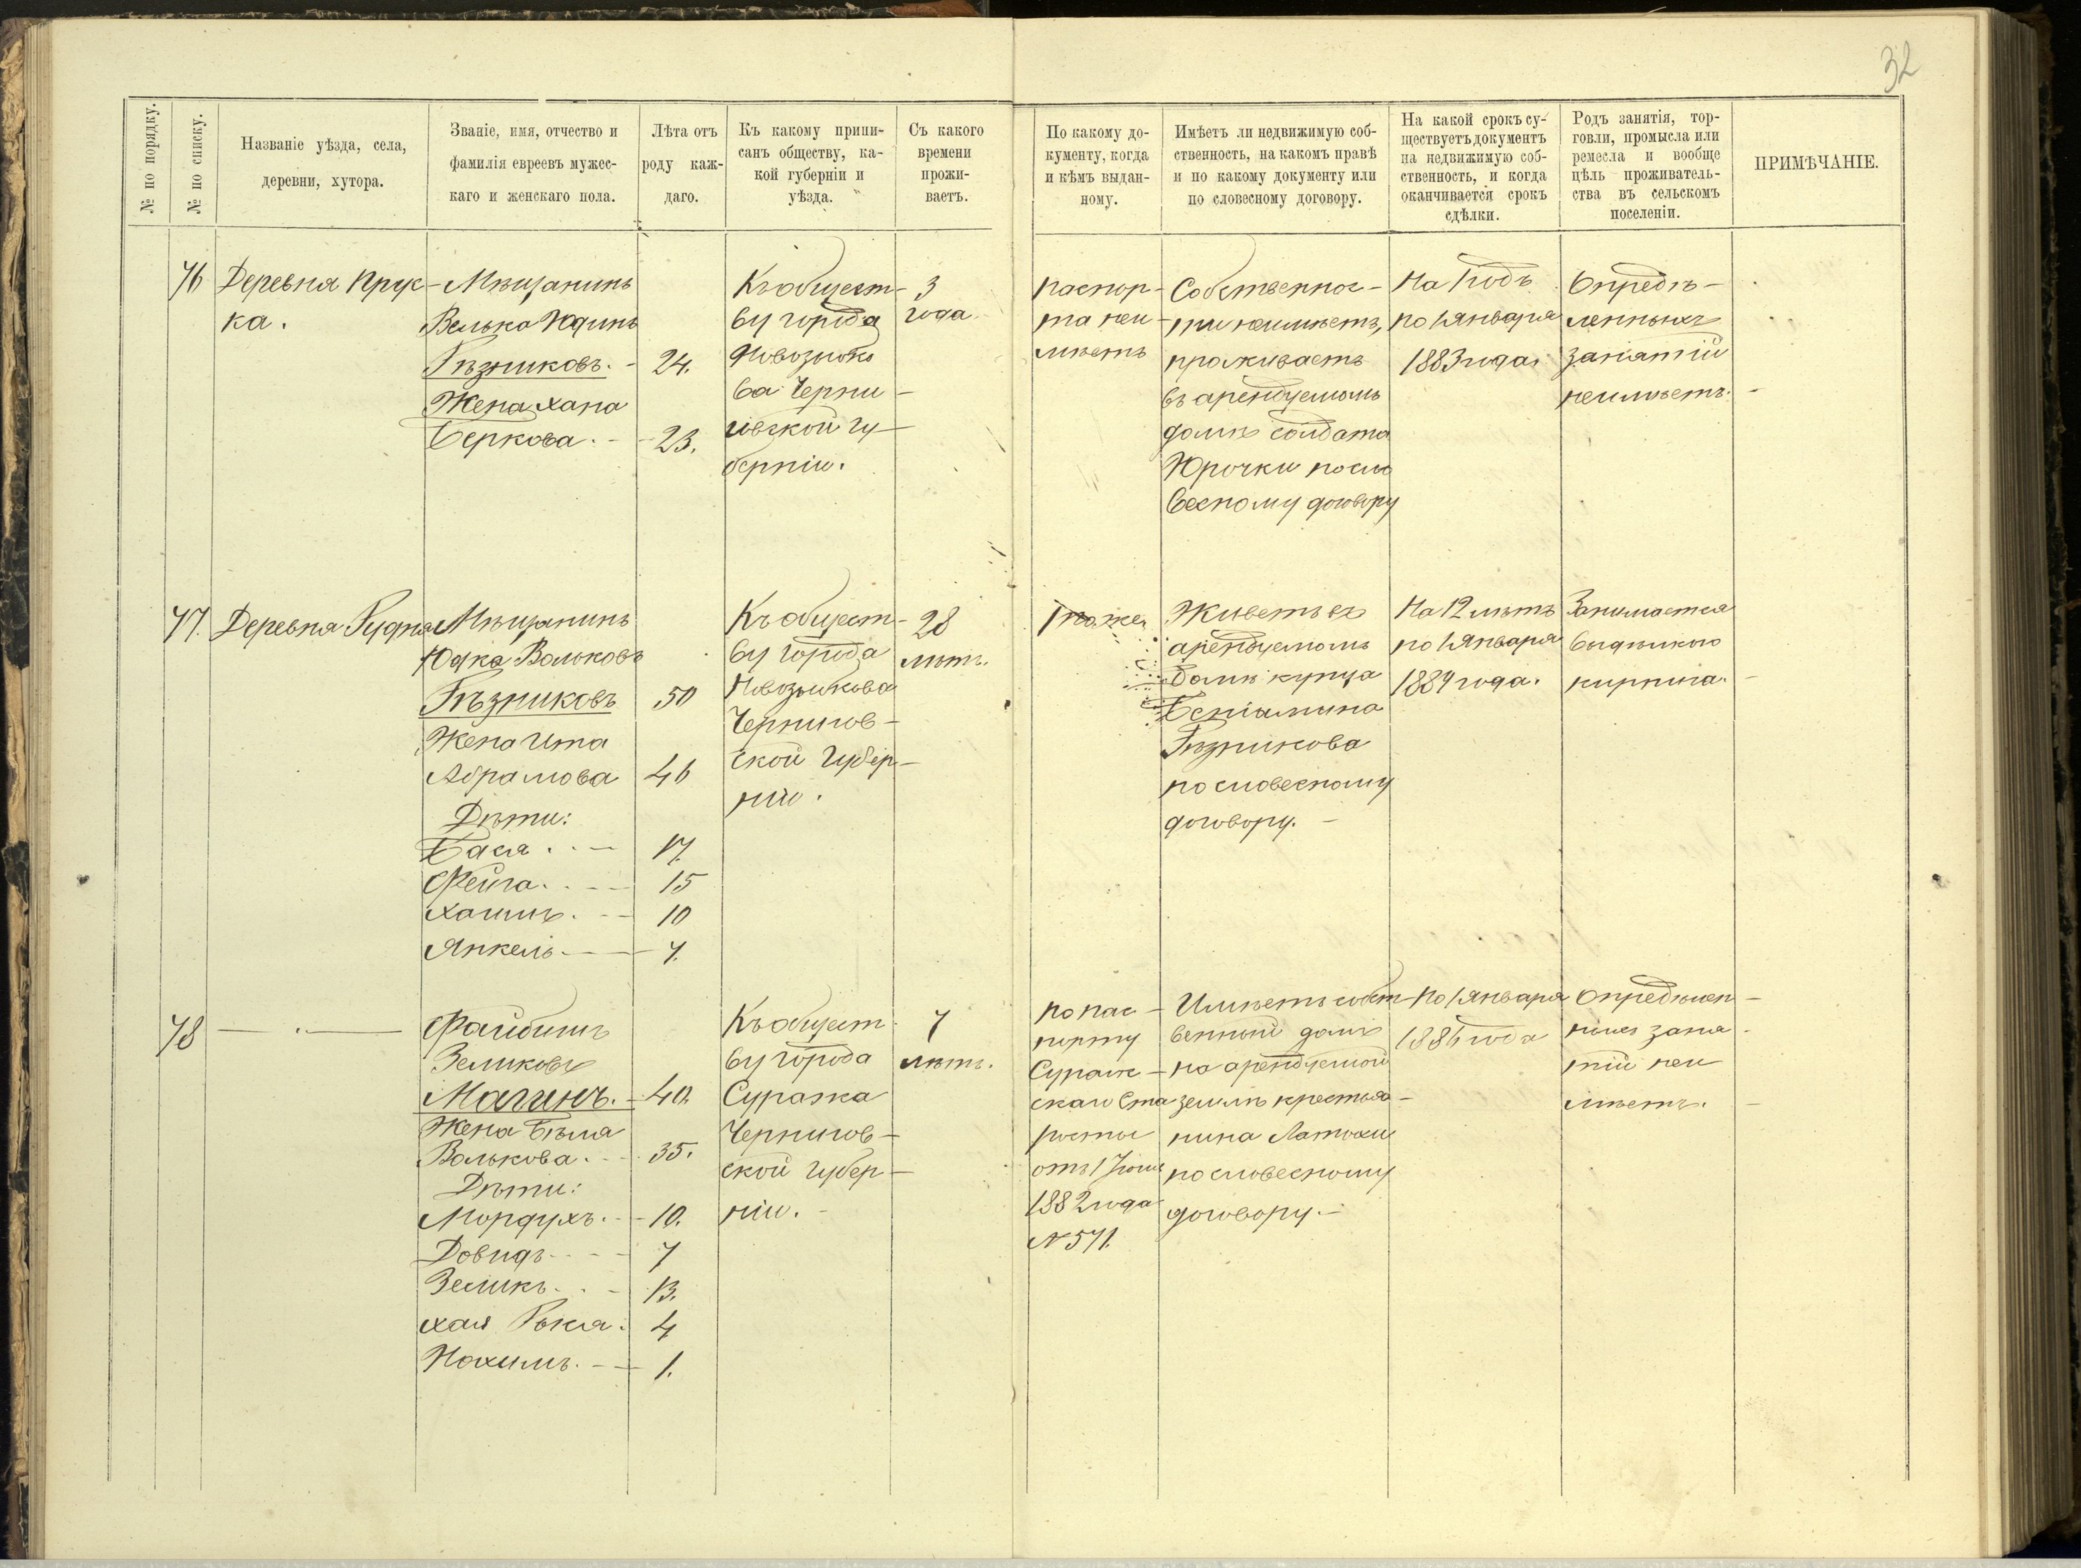 32
№ по порядку.
№ по списку.
Названіе уѣзда, села,
деревни, хутора.
Званіе, имя, отчество и
фамилія евреевъ мужес-
каго и женскаго пола.
Лѣта отъ
роду каж-
даго.
Къ какому припи-
санъ обществу, ка-
кой губерніи и
уѣзда.
Съ какого
времени
прожи-
ваетъ.
По какому до-
кументу, когда
и кѣмъ выдан-
ному.
Имѣетъ ли недвижимую соб-
ственность, на какомъ правѣ
и по какому документу или
по словесному договору.
На какой срокъ су-
ществуетъ документъ
на недвижимую соб-
ственность, и когда
оканчивается срокъ
сдѣлки.
Родъ занятія, тор-
говли, промысла или
ремесла и вообще
цѣль проживатель-
ства въ сельскомъ
поселеніи.
ПРИМѢЧАНІЕ.
76
Деревня Прус-
ка.
Мѣщанинъ
Велька Юдинъ
24.
Жена Хана
Беркова. 23.
Къ общест-
ву города
Новозыбко
ва Черни-
говской гу-
берніи.
3
года
Паспор-
та неи-
мѣетъ
Собственнос-
ти неимѣетъ,
проживаетъ
въ арендуемомъ
домѣ солдата
Юрочки посло
весному договору
На 1 годъ
по 1 Января
1883 года.
Опредѣ-
ленныхъ
занятій
неимѣетъ.
77.
Деревня Рудня
Мѣщанинъ
Юдка Вольковъ
50
Жена Ита
Абрамова 46
Дѣти:
Бася 17.
Фейга. 15
Хаимъ. 10
Янкель 7.
Къ общест-
ву города
Новозыбкова
Чернигов-
ской Губер-
ніи.
28
лѣтъ.
Тоже
Живетъ въ
арендуемомъ
домѣ купца
Беніамина
по словесному
договору.
На 12 лѣтъ
по 1 Января
1884 года.
Занимается
выдѣлкою
кирпича.
78
Файбишъ
Зеликовъ
Магинъ. 40.
Жена Бѣля
Волькова. 35.
Дѣти:
Мордухъ. 10.
Довидъ 7
Зеликъ. 13.
Хая 4
Нохимъ. 1.
Къ общест-
ву города
Суража
Чернигов-
ской губер-
ніи.
7
лѣтъ.
По пас-
порту
Сураж-
скаго Ста
росты
отъ 1 Іюня
1882 года
№ 571.
Имѣетъ собст-
венный домъ
на арендуемой
землѣ крестья-
нина
по словесному
договору.
По 1 Января
1886 года
Опредѣлен-
ныхъ заня-
тій неи
мѣетъ.